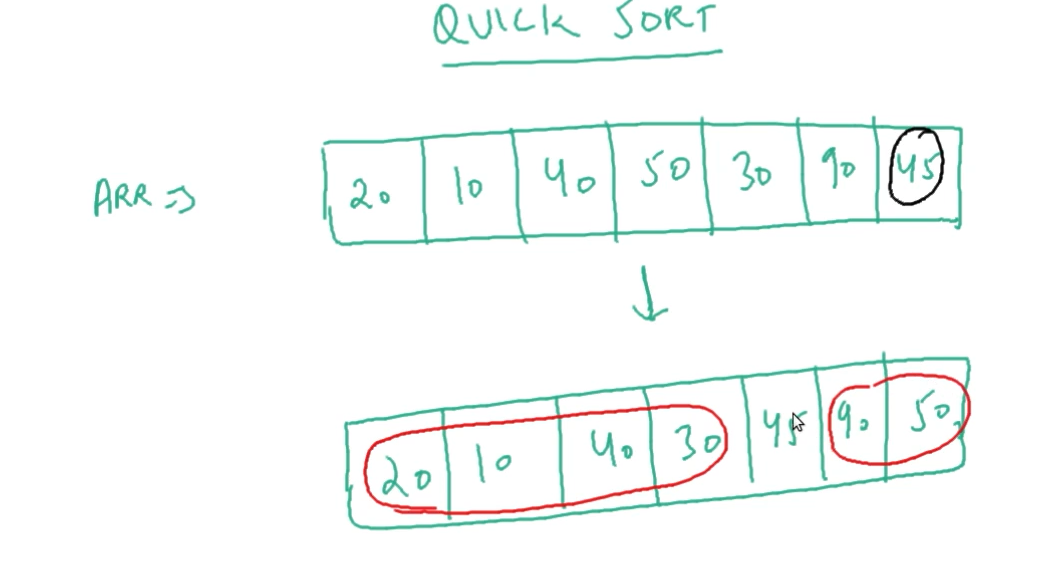 QUICK SORT
ARR ⇒ 20 10 40 50 30 90 45
20 10 40 30 45 90 50